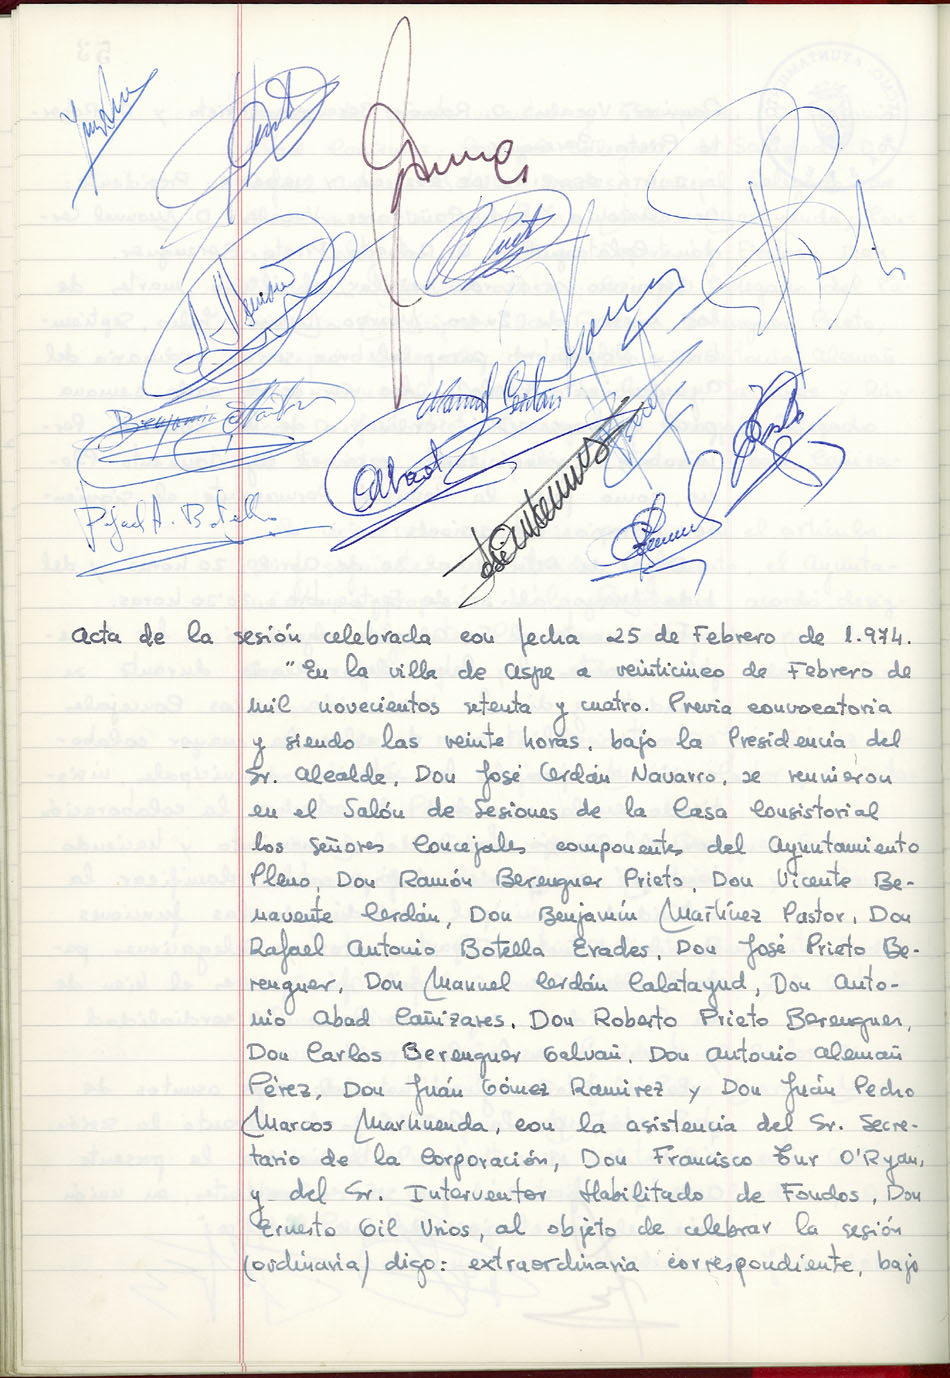 Benjamín
Manuel Cerdán
Abad
Rafael A. Botella
Acta de la sesión celebrada con fecha 25 de Febrero de 1.974.
"En la villa de Aspe a veinticinco de Febrero de
mil novecientos setenta y cuatro. Previa convocatoria
y siendo las veinte horas, bajo la Presidencia del
Sr. Alcalde, Don José Cerdán Navarro, se reunieron
en el Salón de Sesiones de la Casa Consistorial
los Señores Concejales componentes del Ayuntamiento
Pleno, Don Ramón Berenguer Prieto, Don Vicente Be-
navente Cerdán, Don Benjamín Martínez Pastor, Don
Rafael Antonio Botella Erades, Don José Prieto Be-
renguer, Don Manuel Cerdán Calatayud, Don Anto-
nio Abad Cañizares, Don Roberto Prieto Berenguer,
Don Carlos Berenguer Galvañ, Don Antonio Alemañ
Pérez, Don Juán Gómez Ramirez y Don Juán Pedro
Marcos Marhuenda, con la asistencia del Sr. Secre-
tario de la Corporación, Don Francisco Tur O'Ryan,
y del Sr. Interventor Habilitado de Fondos, Don
Ernesto Gil Urios, al objeto de celebrar la sesión
(ordinaria) digo: extraordinaria correspondiente, bajo